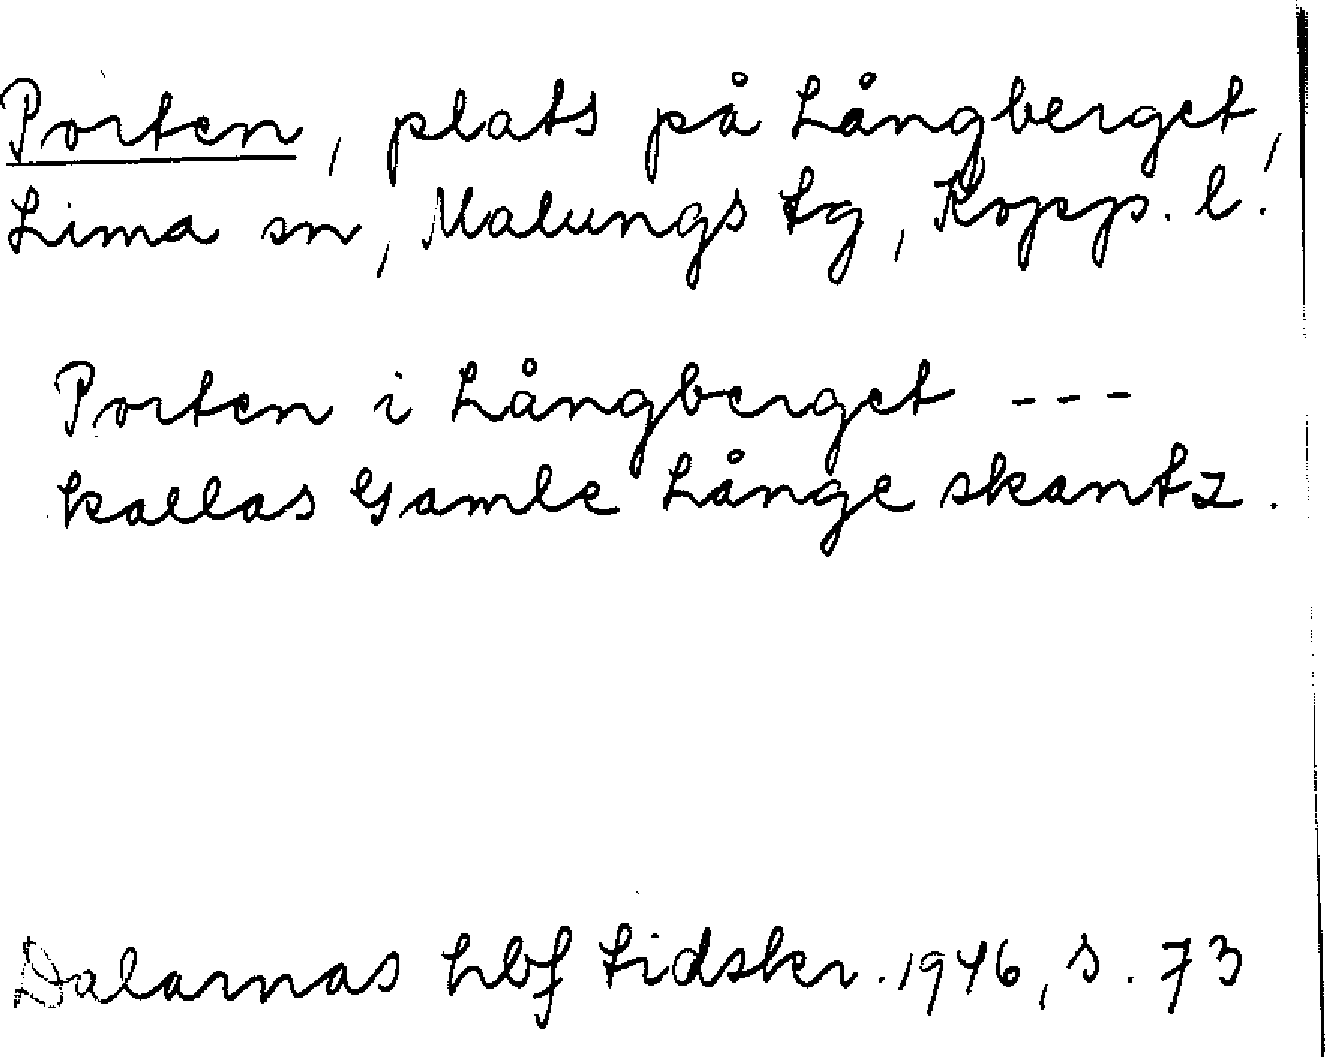 Porten, plats på Långberget,
Lima sn, Malungs tg, Kopp. l.
Porten i Långberget ---
kallas Gamle Långe skantz.
Dalarnas hbf tidskr. 1946, s. 73